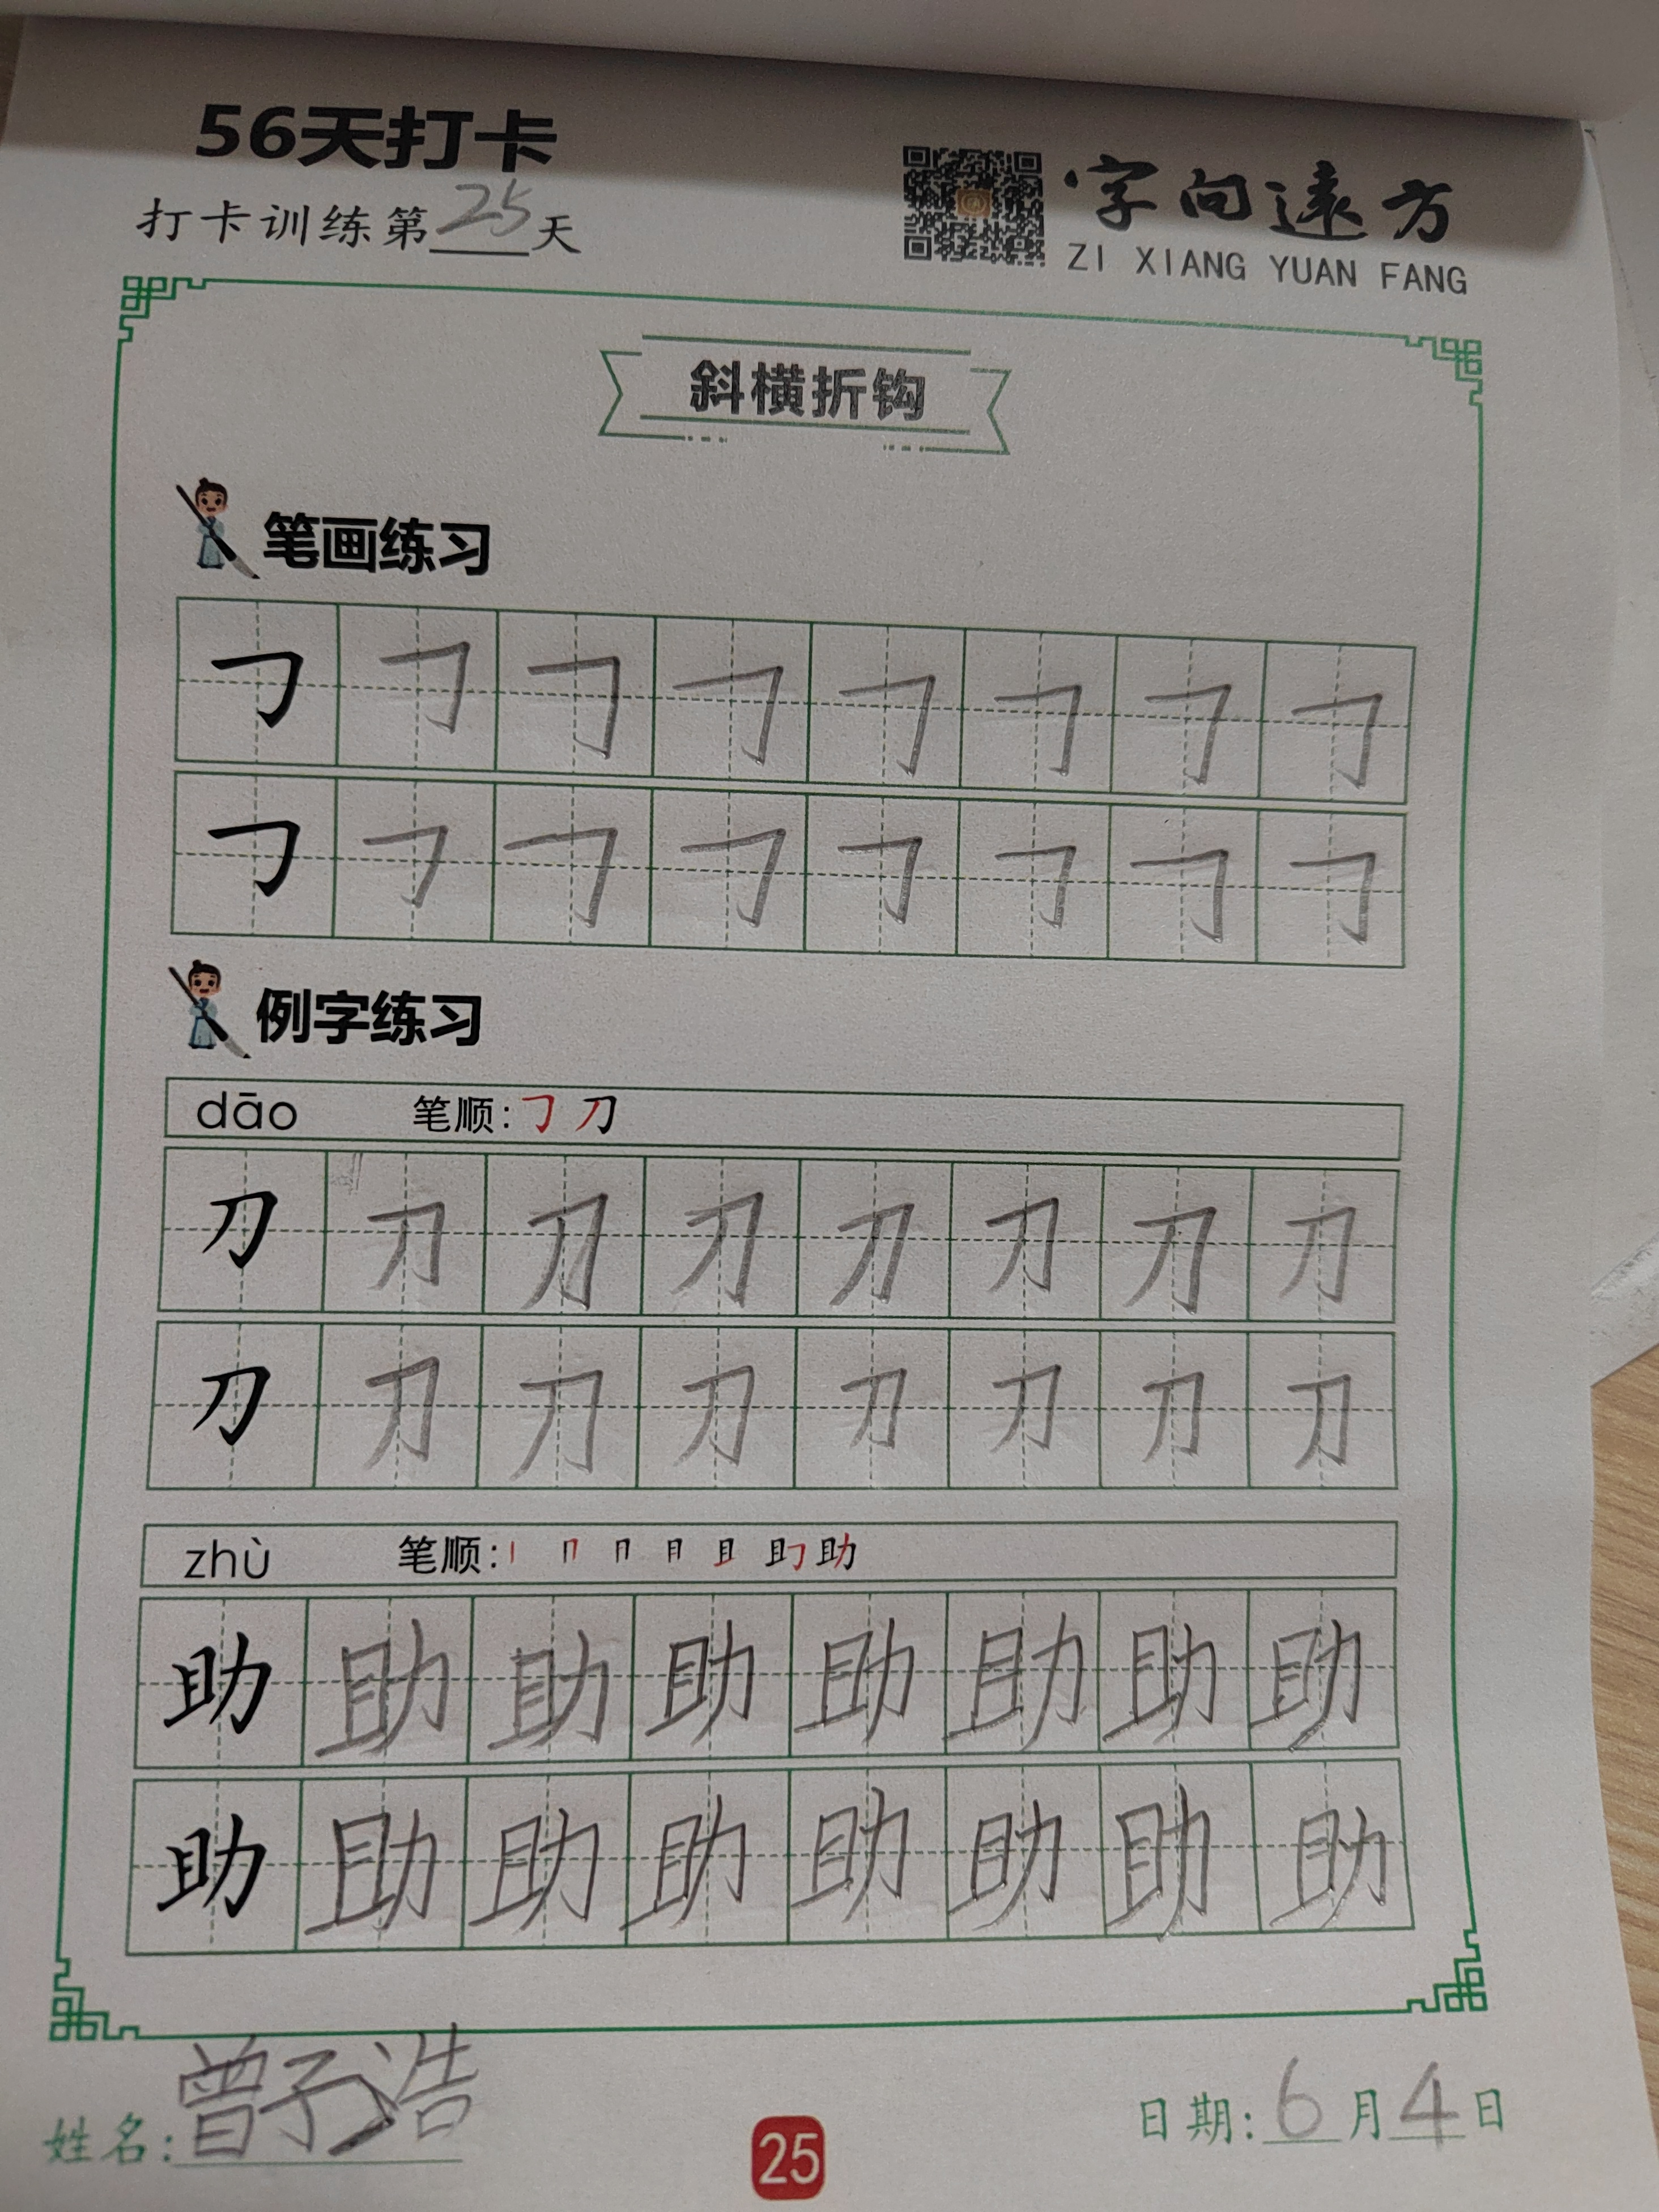 56天打卡
打卡训练第25天
字向远方
ZI XIANG YUAN FANG
斜横折钩
笔画练习
𠃌 𠃌 𠃌 𠃌 𠃌 𠃌 𠃌 𠃌
𠃌 𠃌 𠃌 𠃌 𠃌 𠃌 𠃌 𠃌
例字练习
dāo 笔顺:𠃌 刀
刀 刀 刀 刀 刀 刀 刀 刀
刀 刀 刀 刀 刀 刀 刀 刀
zhù 笔顺:丨 冂 冂 月 且 助
助 助 助 助 助 助 助 助
助 助 助 助 助 助 助 助
姓名:曾子浩
25
日期:6月4日